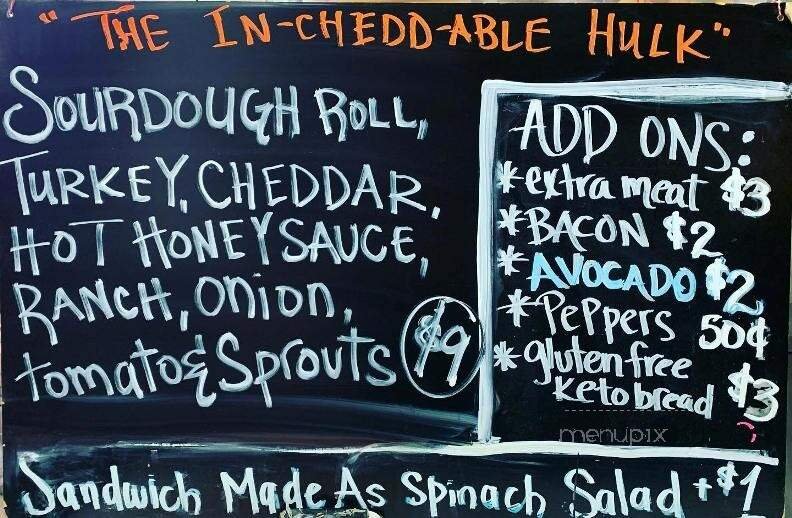 "THE IN-CHEDD-ABLE HULK"
SOURDOUGH ROLL,
TURKEY, CHEDDAR,
HOT HONEY SAUCE,
RANCH, Onion,
tomato & Sprouts $9
ADD ONS:
*extra meat $3
*BACON $2
*AVOCADO $2
*Peppers 50¢
*gluten free
Keto bread $3
menupix
Sandwich Made As Spinach Salad +$1